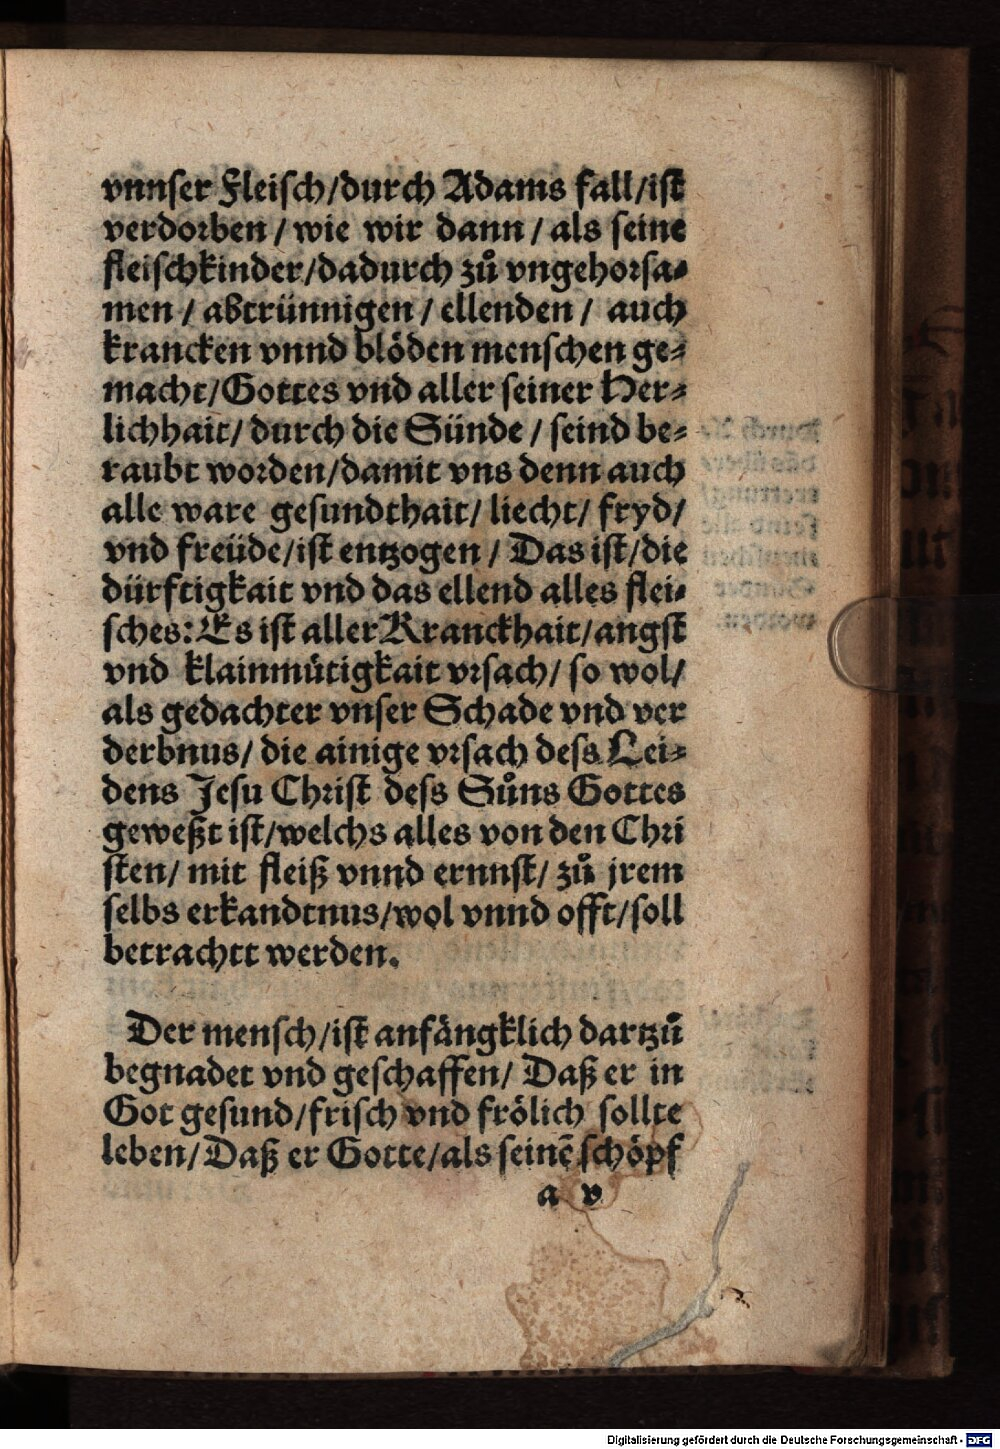 vnnser Fleisch/durch Adams fall/ist
verdorben/ wie wir dann/ als seine
fleischkinder/dadurch zů vngehorsa⸗
men/ abtrünnigen/ ellenden/ auch
krancken vnnd blöden menschen ge⸗
macht/Gottes vnd aller seiner Her⸗
lichhait/ durch die Sünde/ seind be⸗
raubt worden/damit vns denn auch
alle ware gesundthait/ liecht/ fryd/
vnd freüde/ist entzogen/ Das ist/die
dürftigkait vnd das ellend alles flei⸗
sches: Es ist aller Kranckhait/angst
vnd klainmütigkait vrsach/ so wol/
als gedachter vnser Schade vnd ver
derbnus/ die ainige vrsach dess Lei⸗
dens Jesu Christ dess Sůns Gottes
geweßt ist/welchs alles von den Chri
sten/ mit fleiß vnnd ernnst/ zů jrem
selbs erkandtnus/wol vnnd offt/soll
betrachtt werden.
Der mensch/ist anfängklich dartzů
begnadet vnd geschaffen/ Daß er in
Got gesund/frisch vnd frölich sollte
leben/Daß er Gotte/als seinē schöpf
a v
Digitalisierung gefördert durch die Deutsche Forschungsgemeinschaft - DFG